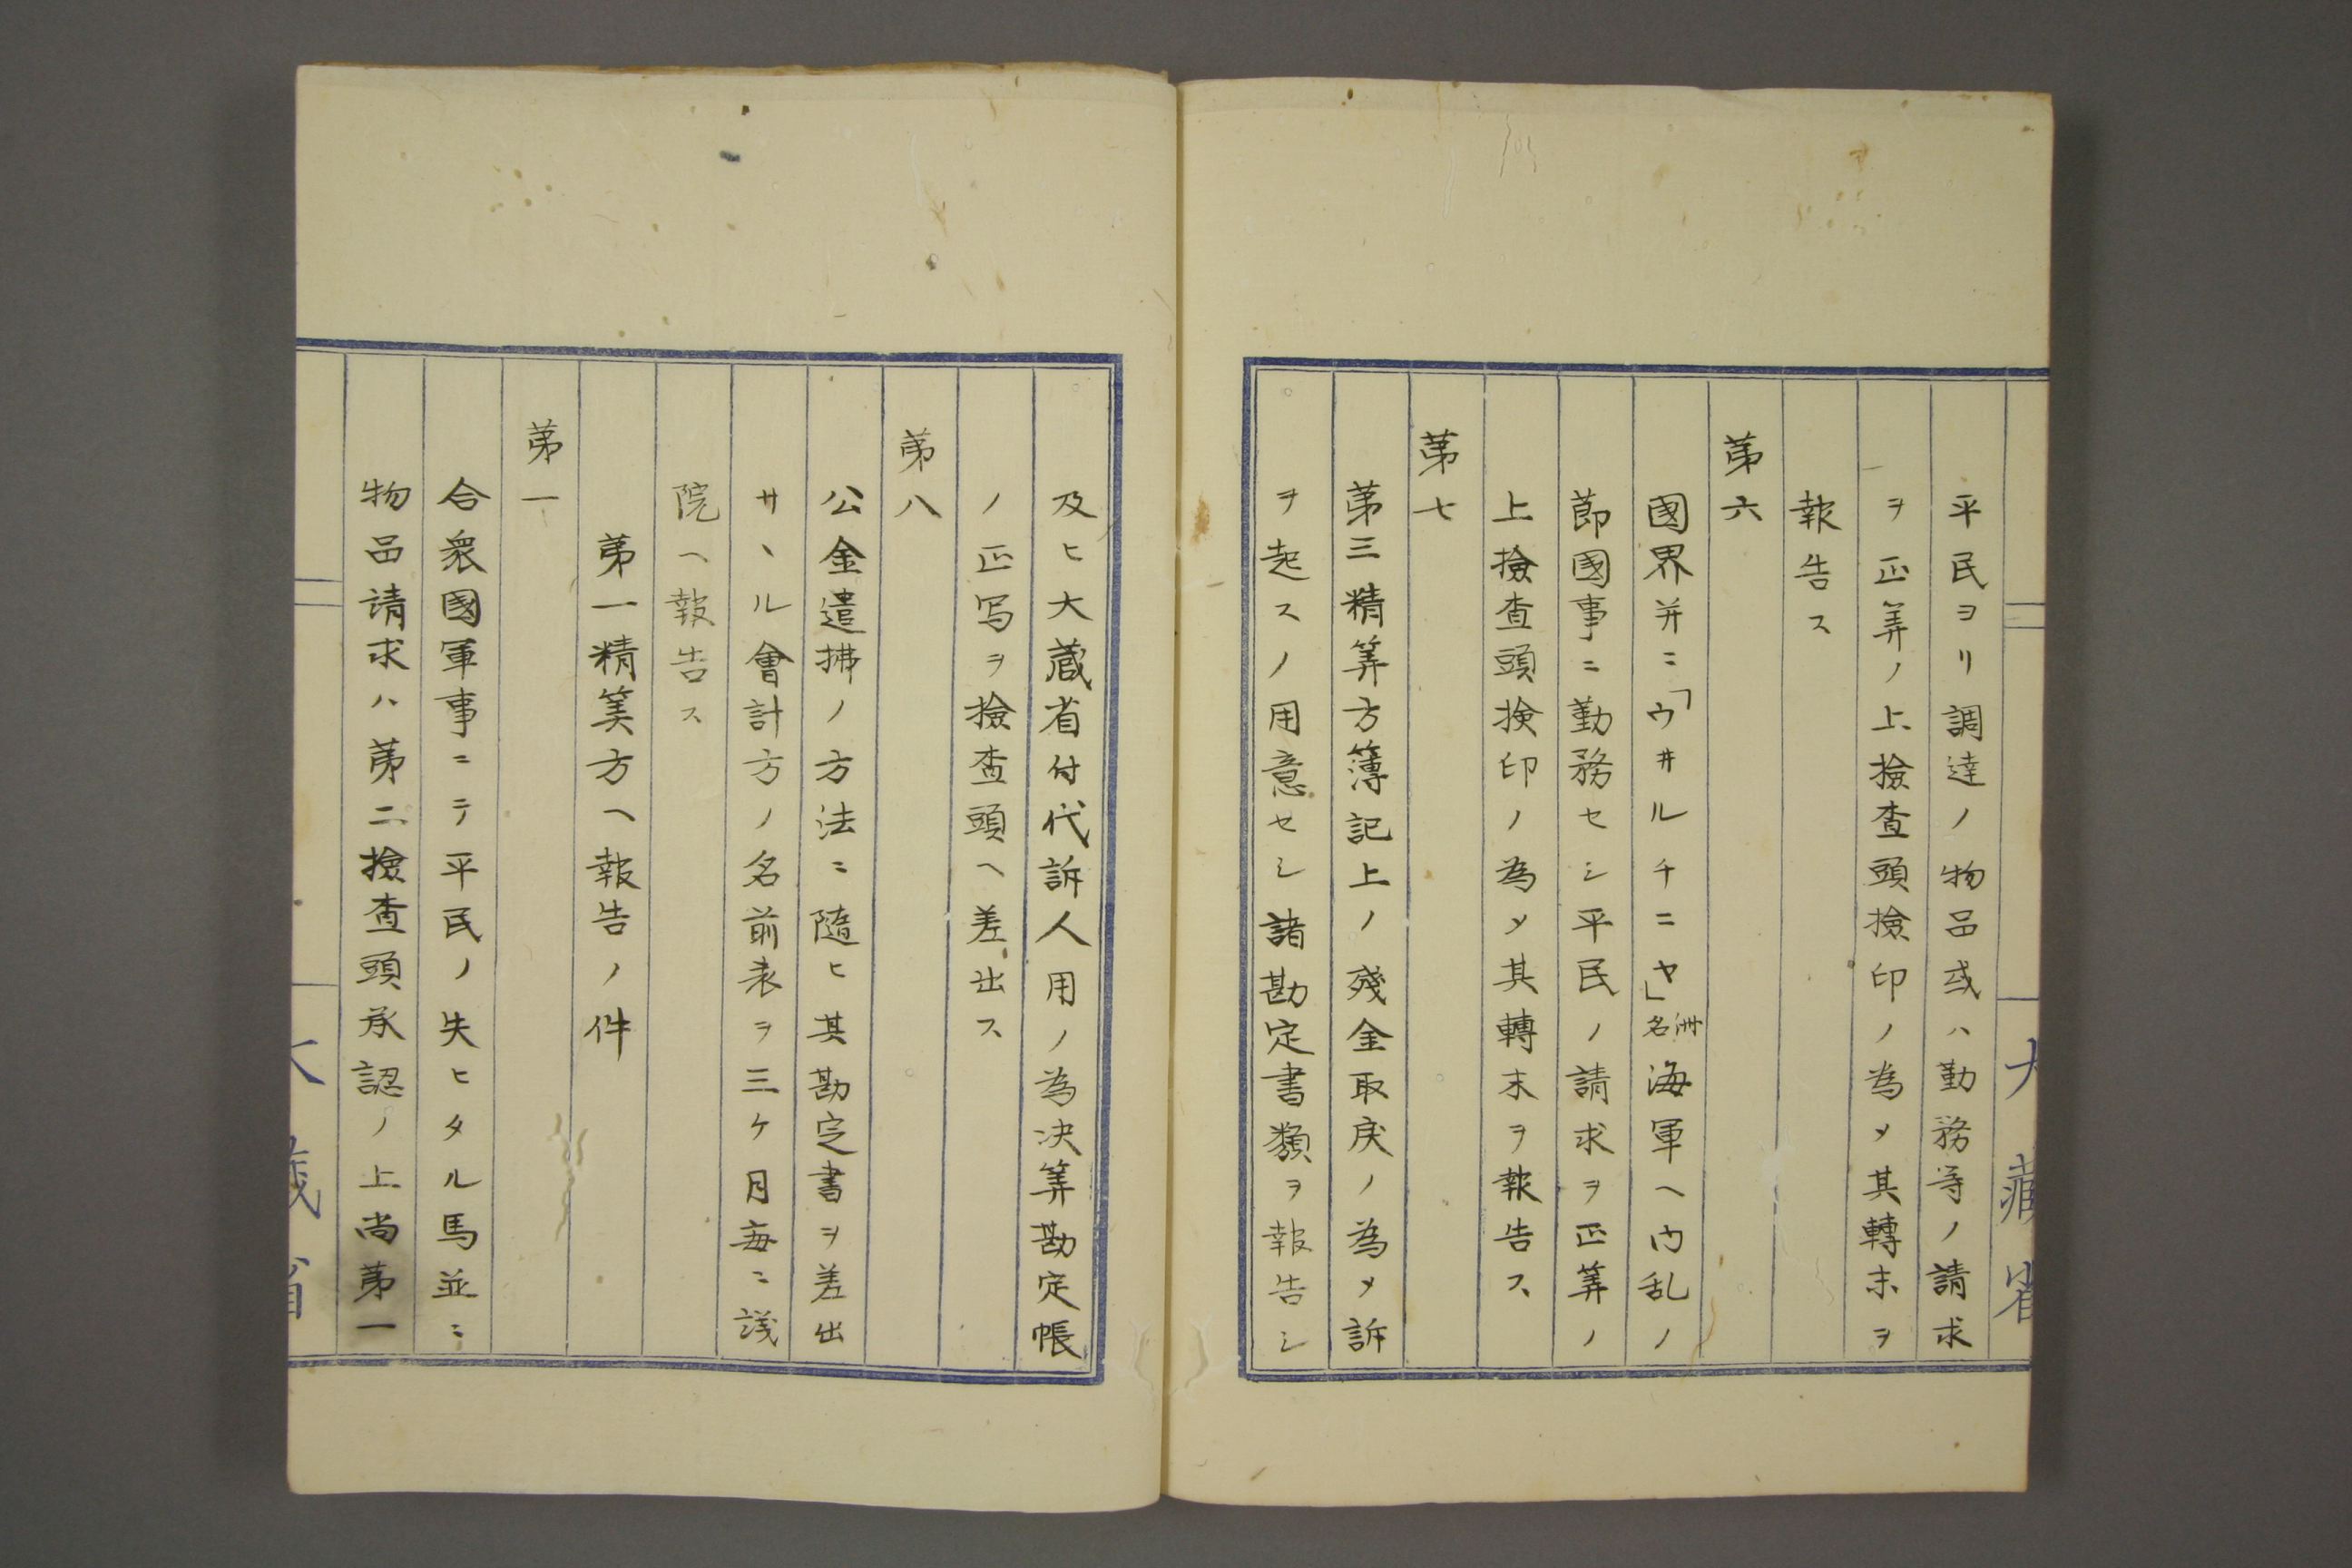 平民ヨリ調達ノ物品或ハ勤務等ノ請求
ヲ正筭ノ上撿査頭撿印ノ為メ其轉末ヲ
報告ス
第六
國界并ニ「ウヰルチニヤ」洲名海軍ヘ内乱ノ
節國事ニ勤務セシ平民ノ請求ヲ正筭ノ
上撿査頭検印ノ為メ其轉末ヲ報告ス
第七
第三精筭方簿記上ノ殘金取戻ノ為メ訴
ヲ起スノ用意セシ諸勘定書類ヲ報告シ
及ヒ大蔵省付代訴人用ノ為决筭勘定帳
ノ正写ヲ撿査頭ヘ差出ス
第八
公金遣拂ノ方法ニ隨ヒ其勘定書ヲ差出
サヽル會計方ノ名前表ヲ三ケ月毎ニ議
院ヘ報告ス
第一精筭方ヘ報告ノ件
第一
合衆國軍事ニテ平民ノ失ヒタル馬並ニ
物品请求ハ第二撿査頭承認ノ上尚第一
大藏省